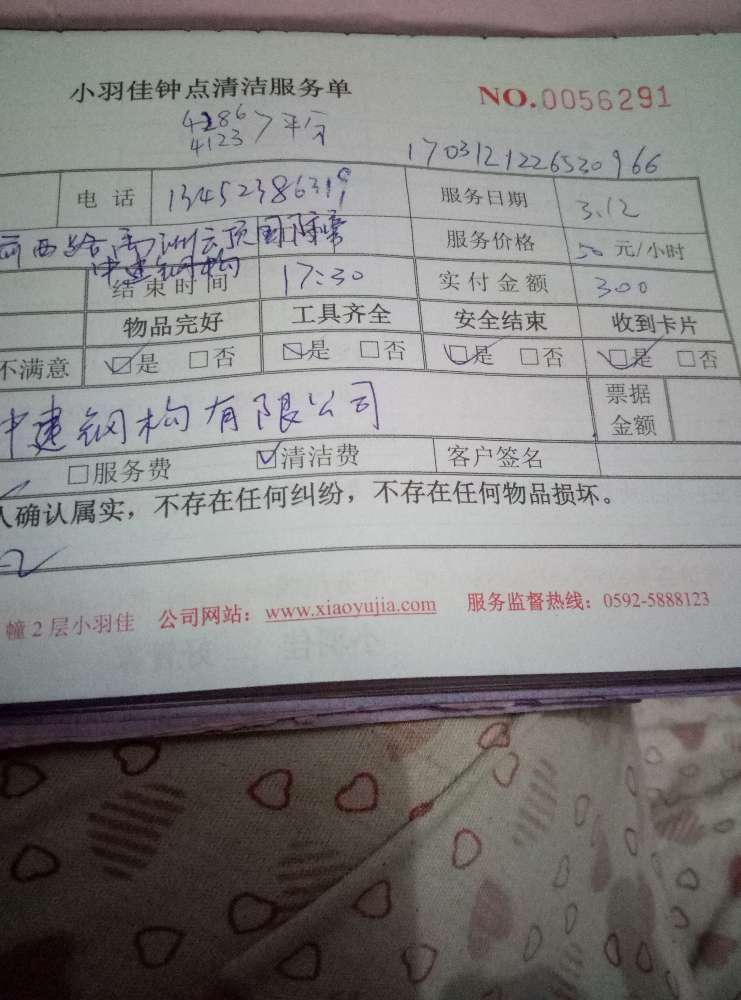 小羽佳钟点清洁服务单 NO.0056291
4286
4123 平分
170312122653 0966
电话 13452386319 服务日期 3.12
服务价格 50 元/小时
中建钢构
结束时间 17:30 实付金额 300
物品完好 工具齐全 安全结束 收到卡片
不满意 ☑是 □否 ☑是 □否 ☑是 □否 ☑是 □否
中建钢构有限公司 票据
金额
□服务费 ☑清洁费 客户签名
人确认属实，不存在任何纠纷，不存在任何物品损坏。
幢2层小羽佳 公司网站：www.xiaoyujia.com 服务监督热线：0592-5888123